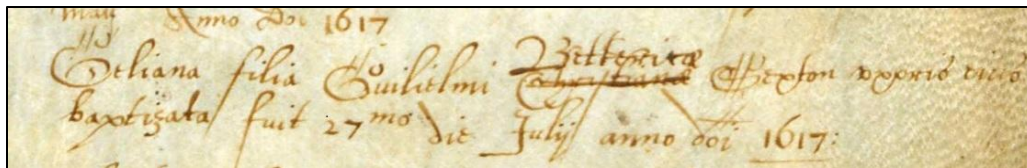 Maij Anno Doi 1617
Geliana filia Guilielmi Bettericæ Christianæ Sexton vxoris eius
baptizata fuit 27mo die Julij anno doi 1617: